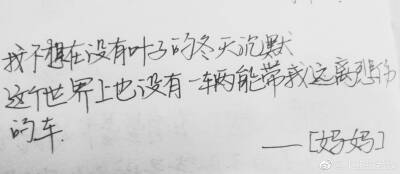 我不想在没有叶子的冬天沉默
这个世界上也没有一车两能带我远离悲伤
的车.
——[妈妈]